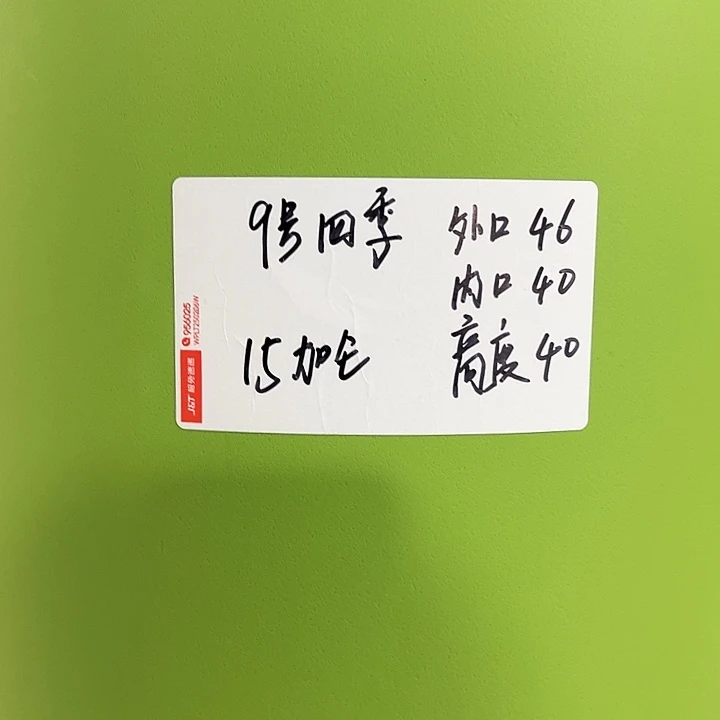 9号四季 外口 46
内口 40
15加仑 高度 40
J&T 极兔速递
956025